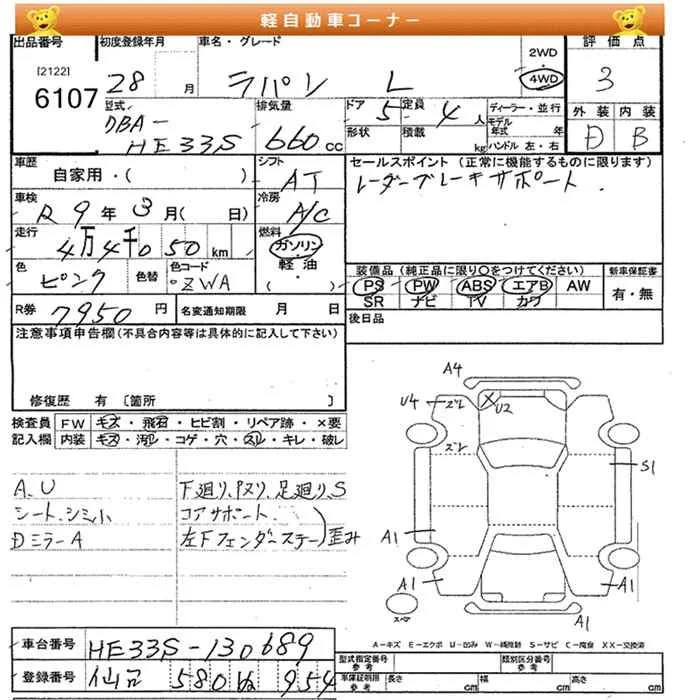 軽自動車コーナー
出品番号 初度登録年月 車名・グレード 2WD 評価点
[2122] 28 月 ラパン L 4WD 3
6107 型式 排気量 ドア 5 定員 4 人 ディーラー・並行 外装 内装
DBA- モデル年式 年 D B
HE33S 660 cc 形状 積載 kg ハンドル 左・右
車歴 シフト セールスポイント (正常に機能するものに限ります)
自家用・( ) AT レーダーブレーキサポート.
車検 冷房
R 9 年 3 月( 日) A/C
走行 燃料
4万4千050 km ガソリン
色 色替 色コード 軽油 装備品 (純正品に限り○をつけてください) 新車保証書
ピンク ZWA ( ) PS PW ABS エアB AW 有・無
SR ナビ TV カワ
R券 7950 円 名変通知期限 月 日 後日品
注意事項申告欄(不具合内容等は具体的に記入して下さい)
修復歴 有 〔箇所 〕
検査員 FW キズ・飛石・ヒビ割・リペア跡・×要
記入欄 内装 キズ・汚れ・コゲ・穴・スレ・キレ・破レ
A.U 下廻り、内刄り、足廻り、S
シート、シミ小 コアサポート.
Dミラー A 左Fフェンダーステー 歪み
A4
U4 ズレ U2
ズレ
S1
A1
A1 A1
スペア A1
A-キズ E-エクボ U-凹み W-補修跡 S-サビ C-腐食 XX-交換済
車台番号 HE33S-130689 型式指定番号 参考 類別区分番号 参考
登録番号 仙台 580 ね 954 車庫証明用 参考 長さ cm 幅 cm 高さ cm